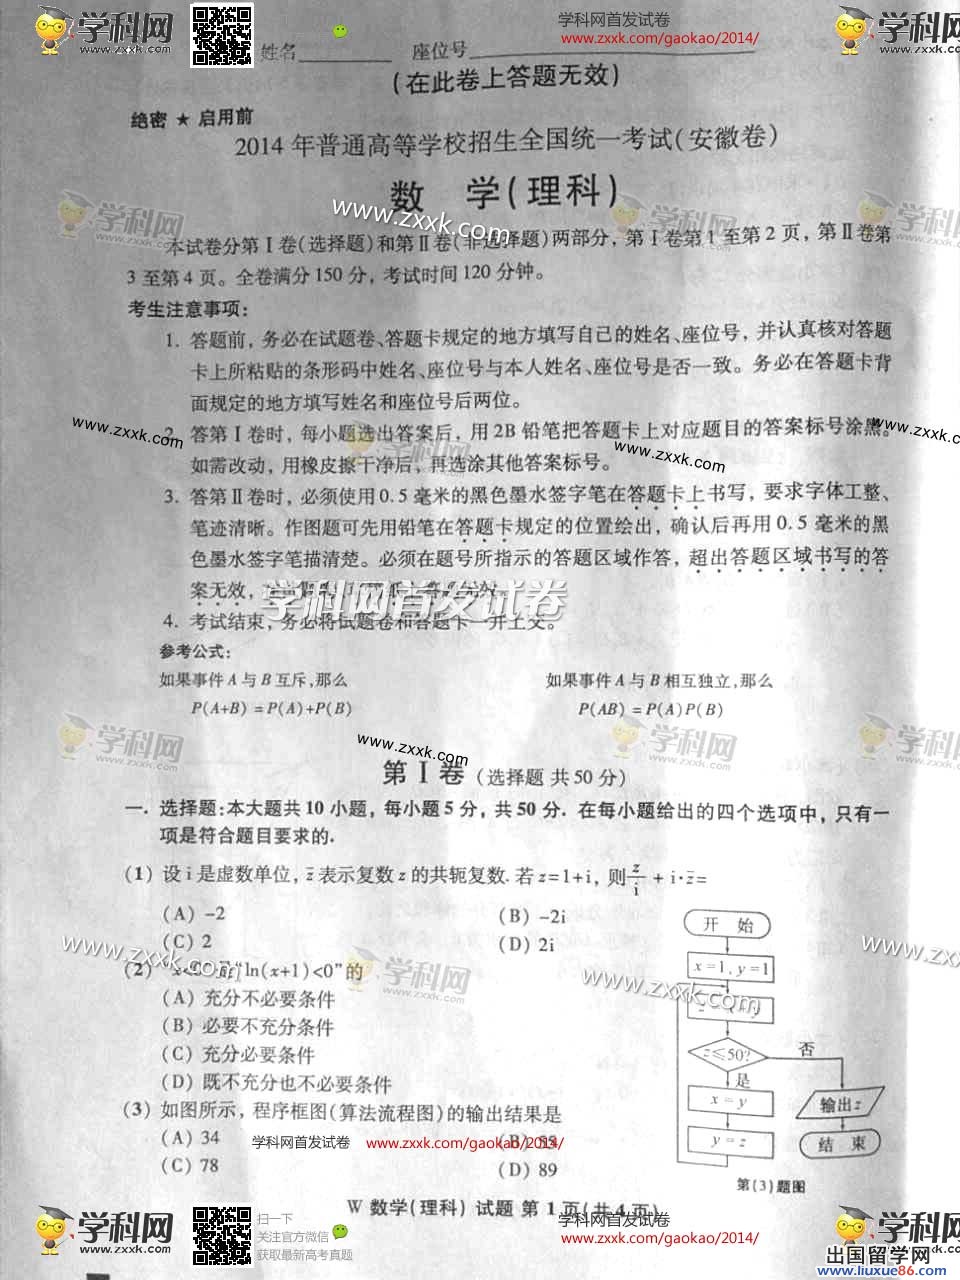 学科网 www.zxxk.com
学科网首发试卷
www.zxxk.com/gaokao/2014/
学科网 www.zxxk.com
姓名 座位号
(在此卷上答题无效)
绝密 ★ 启用前
2014 年普通高等学校招生全国统一考试(安徽卷)
数 学(理科)
www.zxxk.com
本试卷分第Ⅰ卷(选择题)和第Ⅱ卷(非选择题)两部分，第Ⅰ卷第 1 至第 2 页，第Ⅱ卷第
3 至第 4 页。全卷满分 150 分，考试时间 120 分钟。
考生注意事项：
1. 答题前，务必在试题卷、答题卡规定的地方填写自己的姓名、座位号，并认真核对答题
卡上所粘贴的条形码中姓名、座位号与本人姓名、座位号是否一致。务必在答题卡背
面规定的地方填写姓名和座位号后两位。
2. 答第Ⅰ卷时，每小题选出答案后，用 2B 铅笔把答题卡上对应题目的答案标号涂黑。
如需改动，用橡皮擦干净后，再选涂其他答案标号。
3. 答第Ⅱ卷时，必须使用 0.5 毫米的黑色墨水签字笔在答题卡上书写，要求字体工整、
笔迹清晰。作图题可先用铅笔在答题卡规定的位置绘出，确认后再用 0.5 毫米的黑
色墨水签字笔描清楚。必须在题号所指示的答题区域作答，超出答题区域书写的答
案无效，
学科网首发试卷
4. 考试结束，务必将试题卷和答题卡一并上交。
参考公式：
如果事件 A 与 B 互斥，那么 如果事件 A 与 B 相互独立，那么
P(A+B) = P(A)+P(B) P(AB) = P(A)P(B)
第Ⅰ卷 (选择题 共 50 分)
一. 选择题：本大题共 10 小题，每小题 5 分，共 50 分. 在每小题给出的四个选项中，只有一
项是符合题目要求的.
(1) 设 i 是虚数单位，z̄ 表示复数 z 的共轭复数. 若 z=1+i，则 z/i + i·z̄=
(A) -2 (B) -2i
(C) 2 (D) 2i
(2) “ln(x+1)<0”的
(A) 充分不必要条件
(B) 必要不充分条件
(C) 充分必要条件
(D) 既不充分也不必要条件
(3) 如图所示，程序框图(算法流程图)的输出结果是
(A) 34 (B) 55
(C) 78 (D) 89
开 始
x=1，y=1
z≤50?
否
是
x = y
y = z
输出z
结 束
第(3)题图
学科网首发试卷 www.zxxk.com/gaokao/2014/
W 数学(理科) 试题 第 1 页(共 4 页)
扫一下
关注官方微信
获取最新高考真题
学科网首发试卷
www.zxxk.com/gaokao/2014/
学科网 www.zxxk.com
出国留学网
www.liuxue86.com